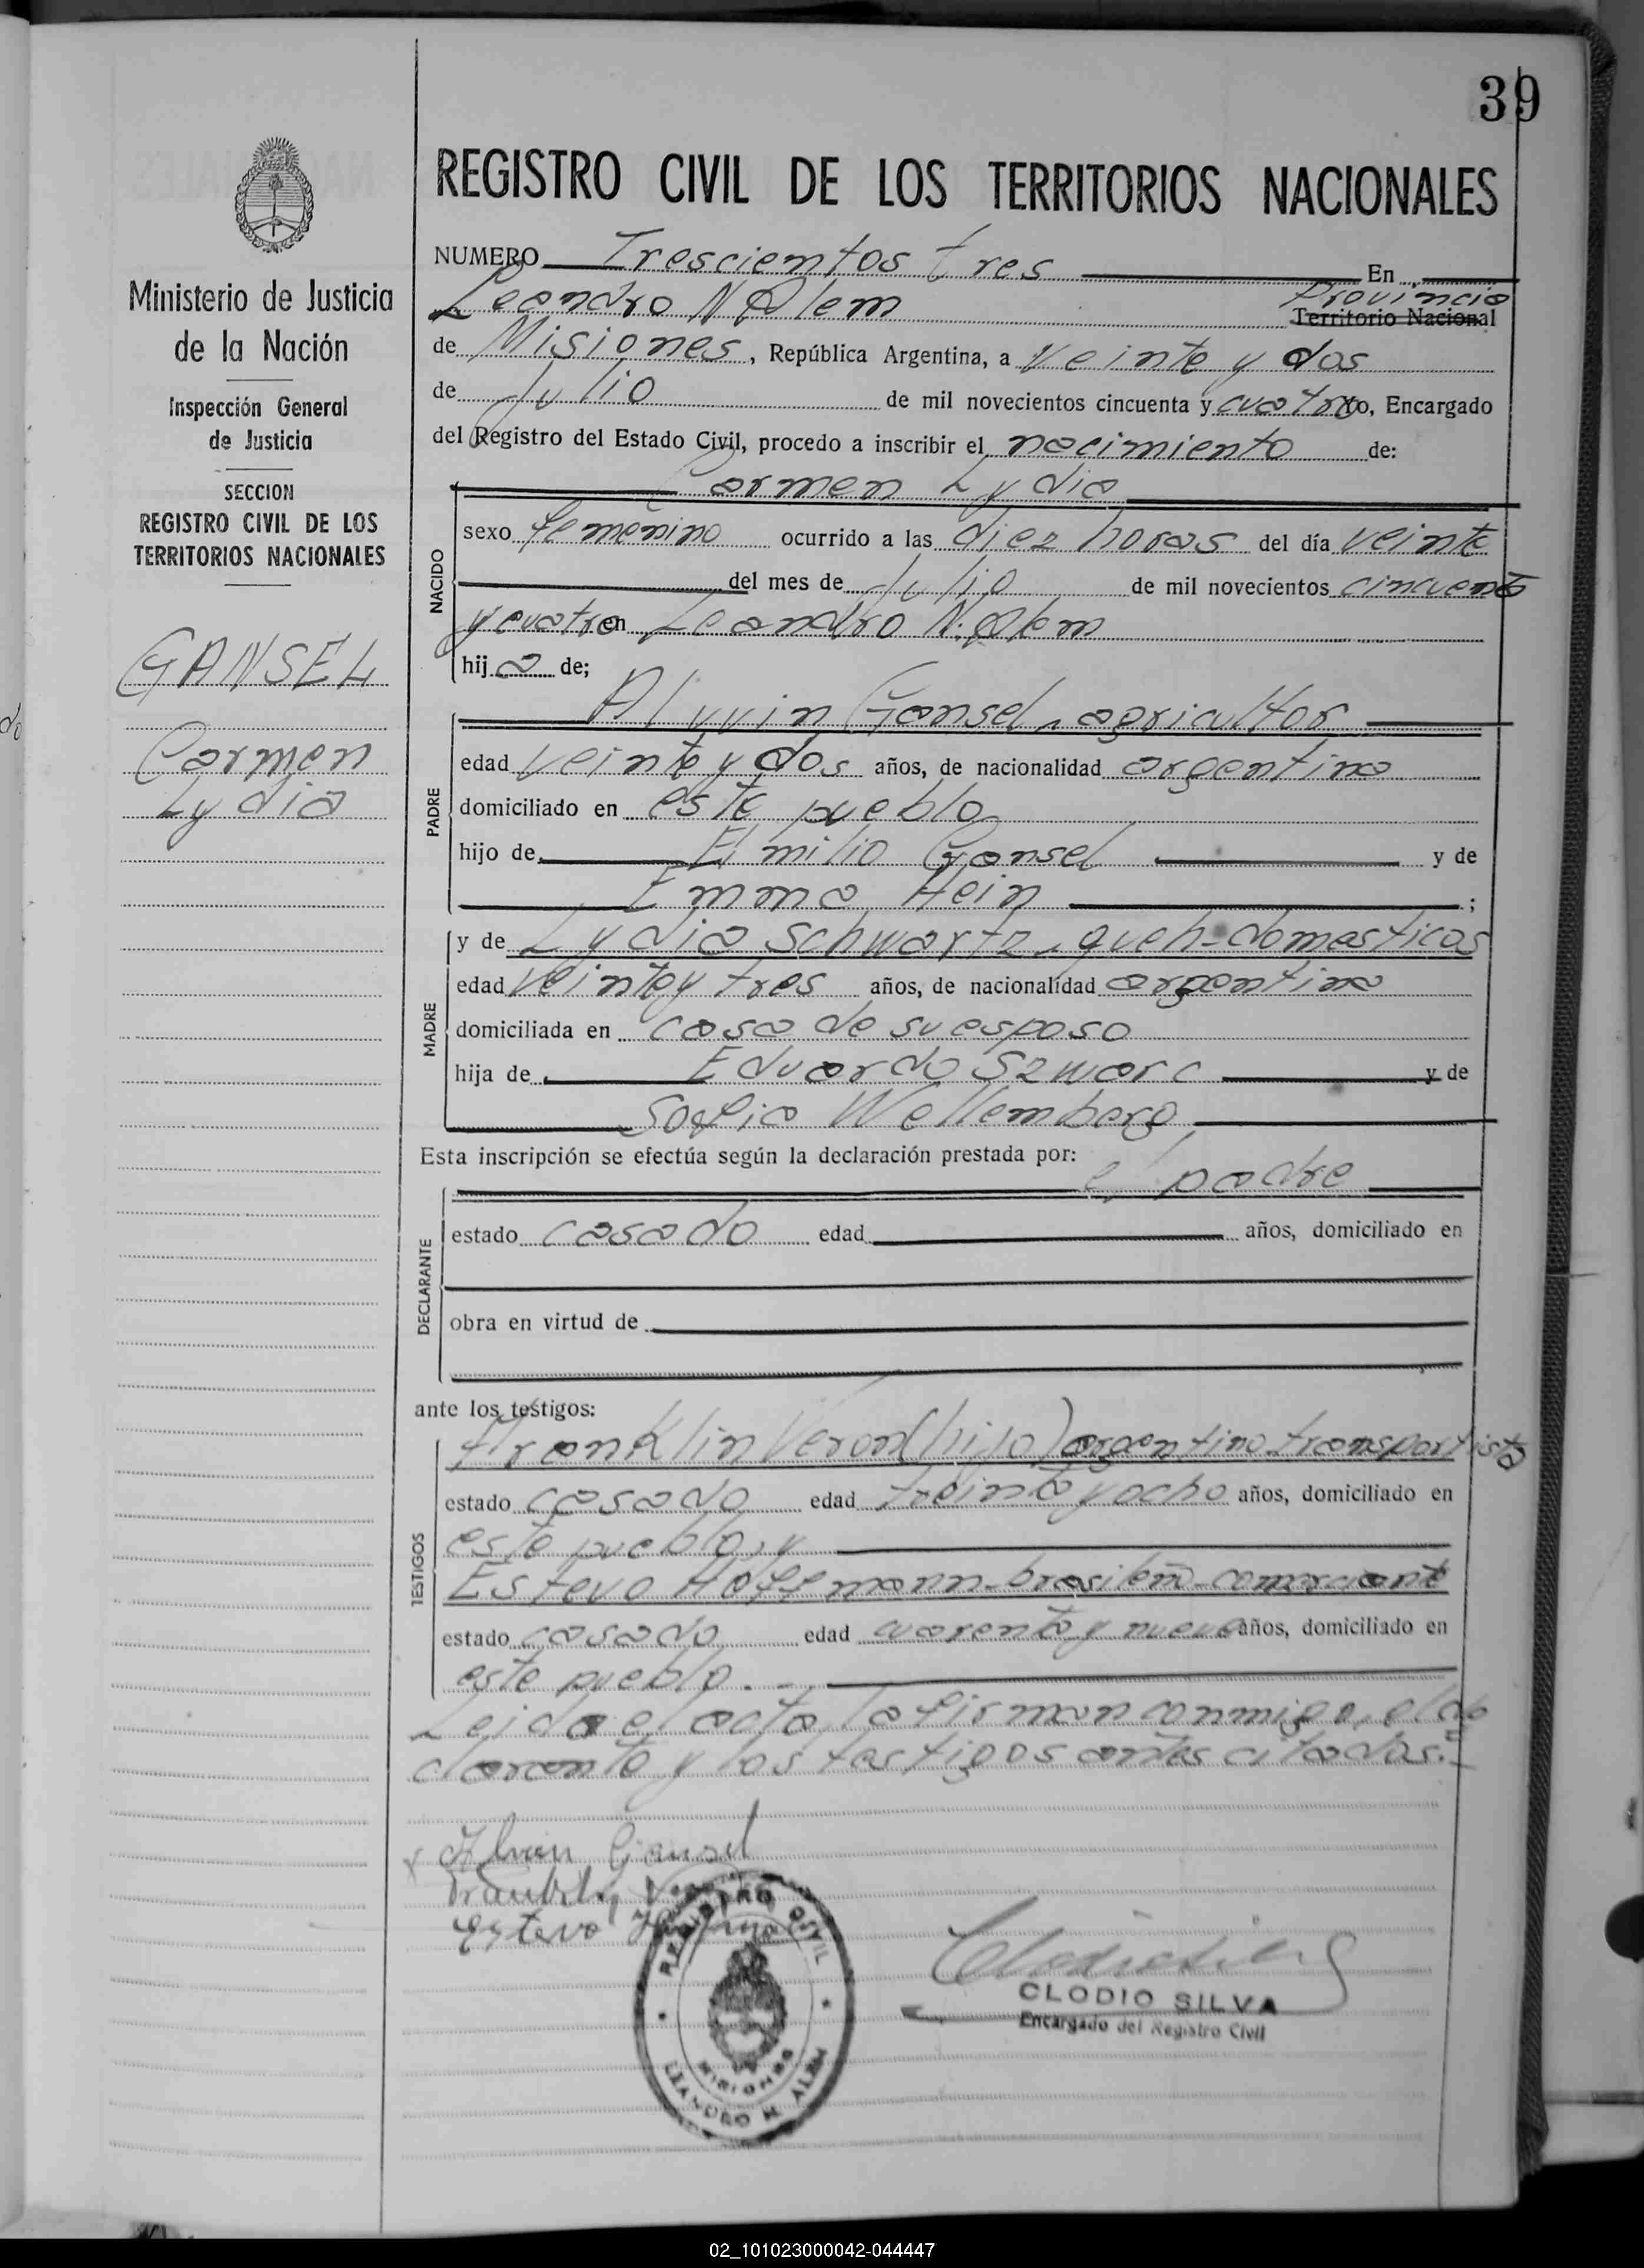 39
REGISTRO CIVIL DE LOS TERRITORIOS NACIONALES
Ministerio de Justicia
de la Nación
Inspección General
de Justicia
SECCION
REGISTRO CIVIL DE LOS
TERRITORIOS NACIONALES
GANSEL
Carmen
Lydia
NUMERO Trescientos tres En
Leandro N Alem Provincia
Territorio Nacional
de Misiones, República Argentina, a veinte y dos
de Julio de mil novecientos cincuenta y cuatro yo, Encargado
del Registro del Estado Civil, procedo a inscribir el nacimiento de:
Carmen Lydia
NACIDO
sexo femenino ocurrido a las diez horas del día veinte
del mes de Julio de mil novecientos cincuenta
y cuatro en Leandro N. Alem
hija de;
Alvvin Gansel, agricultor
PADRE
edad veinte y dos años, de nacionalidad argentina
domiciliado en este pueblo
hijo de Emilio Gansel y de
Emma Hein ;
MADRE
y de Lydia Schwartz, queh-domesticos
edad veinte y tres años, de nacionalidad argentina
domiciliada en casa de su esposo
hija de Eduardo Szwarc y de
Sofia Wellemberg
Esta inscripción se efectúa según la declaración prestada por:
el padre
DECLARANTE
estado casado edad años, domiciliado en
obra en virtud de
ante los testigos:
Franklin Veron (hijo) argentino transportista
TESTIGOS
estado casado edad treinta y ocho años, domiciliado en
este pueblo, y
Estevo Hoffmann-brasileño-comerciante
estado casado edad cuarenta y nueve años, domiciliado en
este pueblo.
Leida el acta, la firman conmigo, el de
clarante y los testigos antes citados.-
Alvin Gansel
Estevo
REGISTRO CIVIL
MISIONES
LEANDRO N. ALEM
CLODIO SILVA
Encargado del Registro Civil
02_101023000042-044447